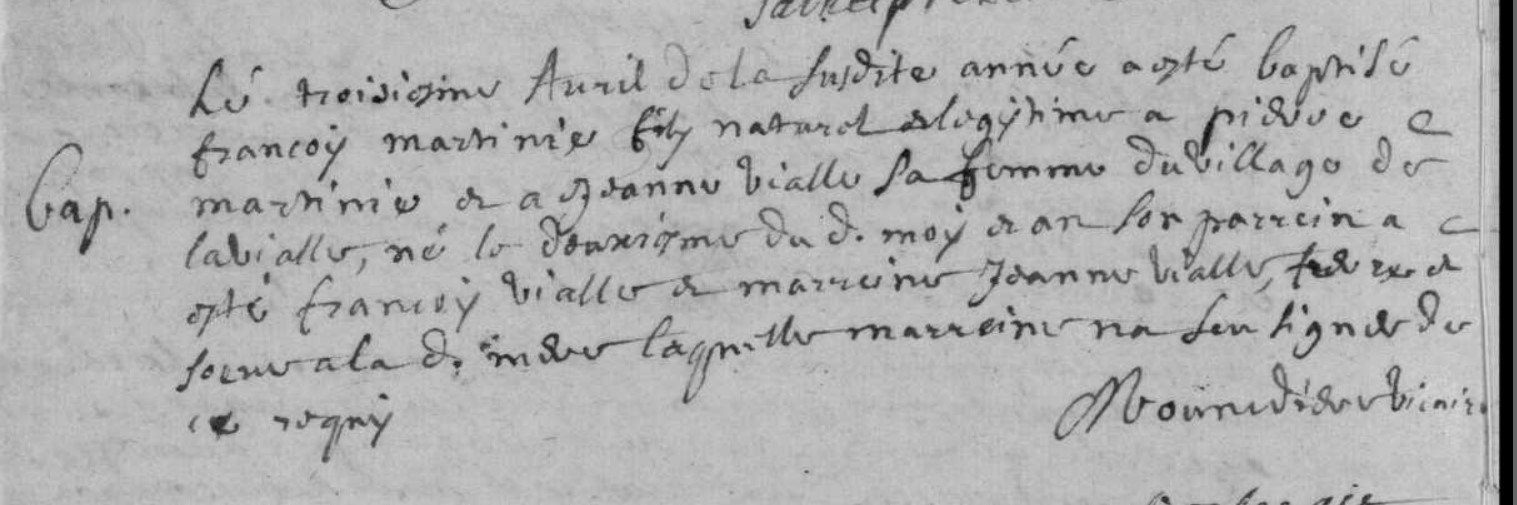 Le troisiesme Auril de la susdite année a esté baptisé
francoy martinie fils naturel & legitime a pierre &
Bap. martinie et a Jeanne Vialle sa femme du Village de
lavialle, né le deuxiesme du d. moy et an son parrein a
esté francoy Vialle et marreine Jeanne Vialle, frere et
soeur a la d. mere laquelle marreine na seu signer de
ce requis
Vicaire